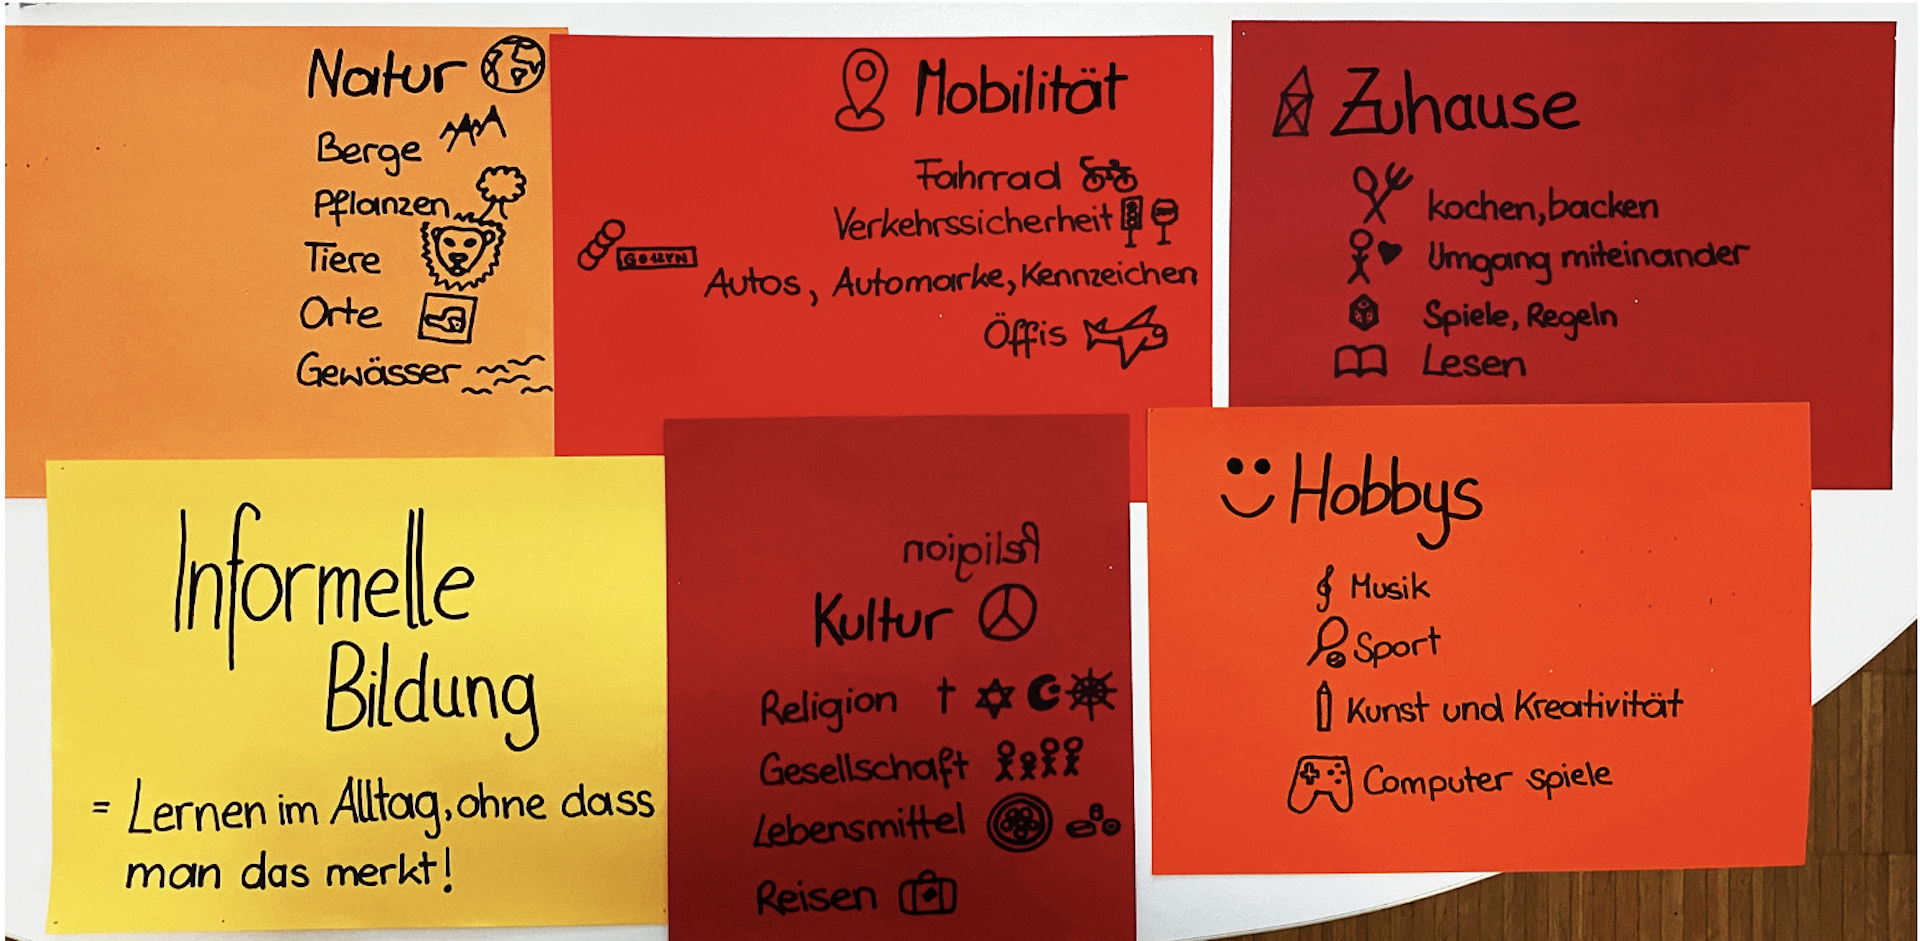 Natur
Berge
Pflanzen
Tiere
Orte
Gewässer
Mobilität
Fahrrad
Verkehrssicherheit
Autos, Automarke, Kennzeichen
Öffis
Zuhause
kochen, backen
Umgang miteinander
Spiele, Regeln
Lesen
Informelle
Bildung
= Lernen im Alltag, ohne dass
man das merkt!
Religion
Kultur
Religion
Gesellschaft
Lebensmittel
Reisen
Hobbys
Musik
Sport
Kunst und Kreativität
Computer spiele